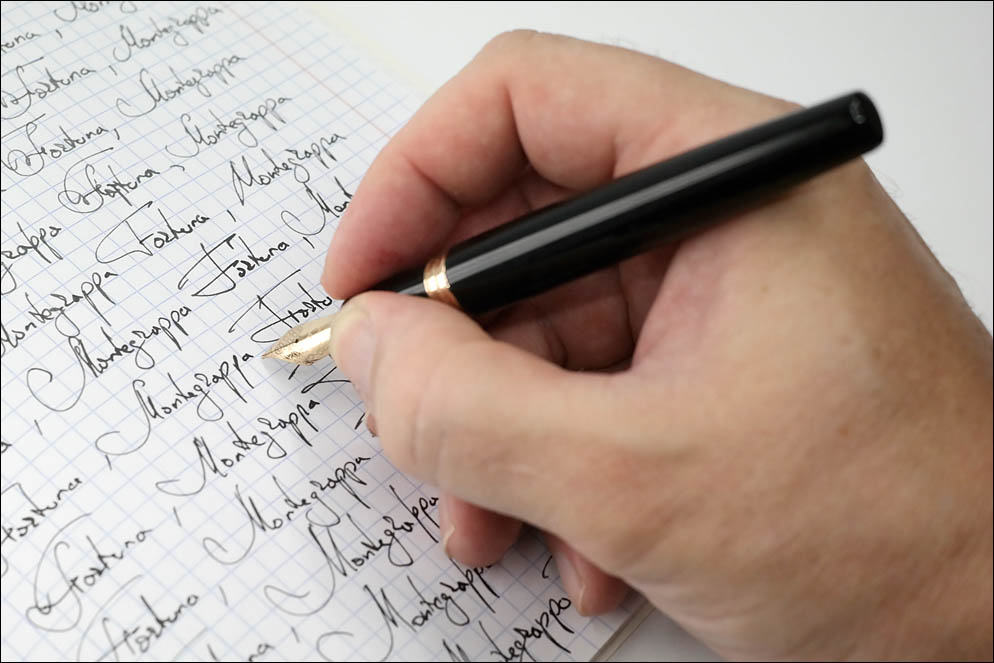 Montegrappa
Fortuna , Montegrappa
Fortuna , Montegrappa
Fortuna , Montegrappa
grappa Fortuna , Montegrappa
Montegrappa Fortuna , Mont
Montegrappa Fortu
, Montegrappa
Fortuna Montegrappa
Fortuna , Montegrappa
Fortuna , Montegrappa
na , Montegrappa
Montegrappa